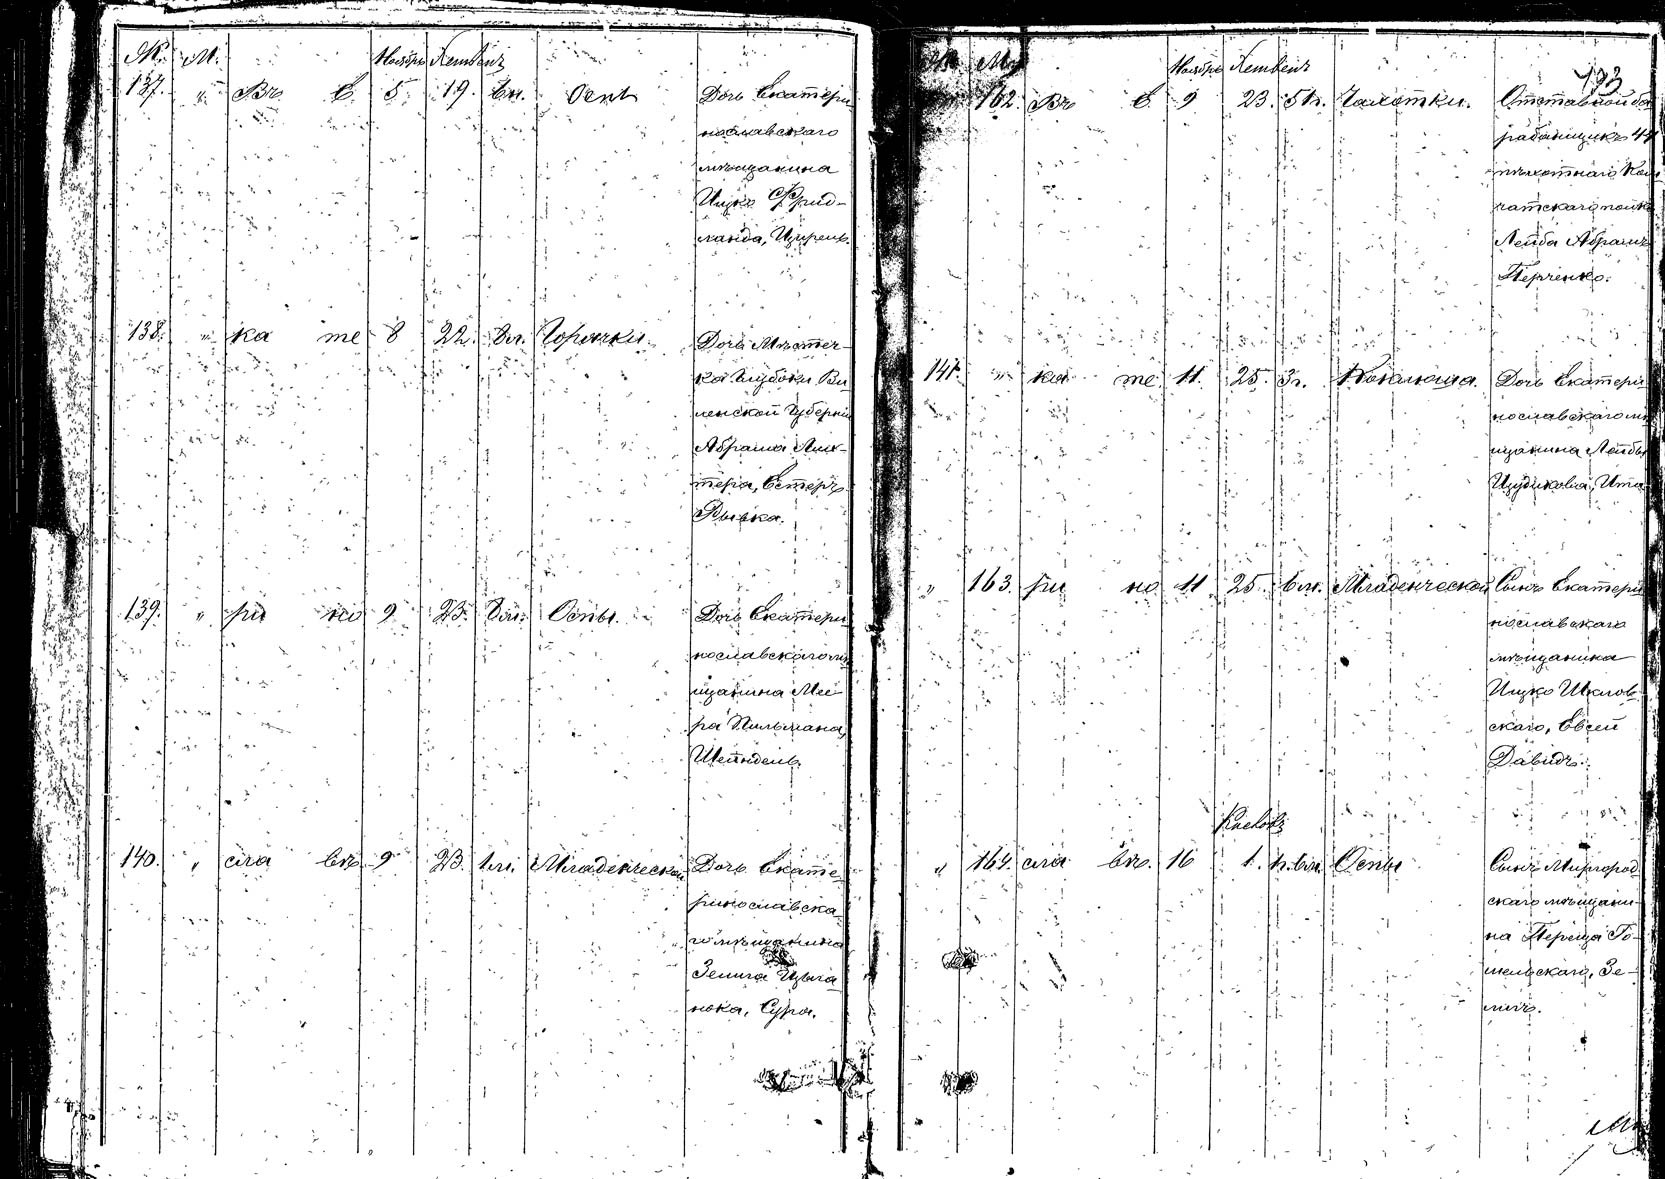 Ж. М. Ноябрь Хешвенъ
137. " Въ Е 5 19 6 м. Оспы Дочь Екатери
нославскаго
мѣщанина
Ицко Фрид-
ланда, Ципрець.
138. " ка те 8 22. 8 м. Горячки Дочь Мѣстеч-
ка Глубоки Ви
ленской Губерніи
Абрама Лик-
тера, Естеръ
Рывка.
139. " ри но 9 23. 8 м. Оспы. Дочь Екатери
нославскаго мѣ
щанина Меи
ра Пильмана,
Шейндель.
140. " сла вѣ 9 23. 1 м. Младенческой Дочь Екате
ринославска
го мѣщанина
Зелига Цыга
нока, Сура.
Ж. М. Ноябрь Хешвенъ
193
" 162. Въ Е 9 23. Чахотки. Отставной ба
рабанщикъ 44
пѣхотнаго Кам
чатскаго полка
Лейба Абрамъ
Перченко.
141. " ка те 11. 25. 3 г. Коклюша. Дочь Екатери
нославскаго мѣ
щанина Лейбы
Ита
" 163. ри но 11 25 6 м. Младенческой Сынъ Екатери
нославскаго
мѣщанина
Ицко Шклов
скаго, Евсей
Давидъ.
Кислевъ
" 164. сла вѣ. 16 1. Оспы Сынъ Миргород
скаго мѣщани
на Переца Го-
мельскаго, Зе-
ликъ.